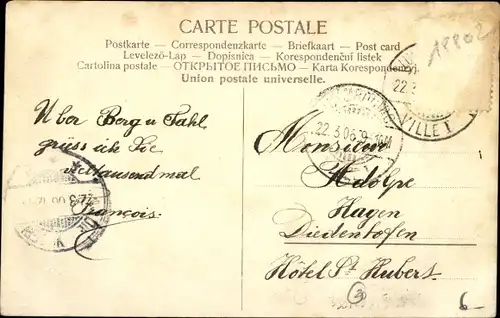 CARTE POSTALE
Postkarte — Correspondenzkarte — Briefkaart — Post card
Levelező-Lap — Dopisnica — Korespondenční listek
Cartolina postale — ОТКРЫТОЕ ПИСЬМО — Karta Korespondencyj.
Union postale universelle.
18802
22.3
VILLE 1
22.3.06.9
Über Berg u Tahl
grüss ich Sie
vieltausendmal
François.
Monsieur
Adolpe
Hagen
Diedenhofen
Hôtel St Hubert
3
6-